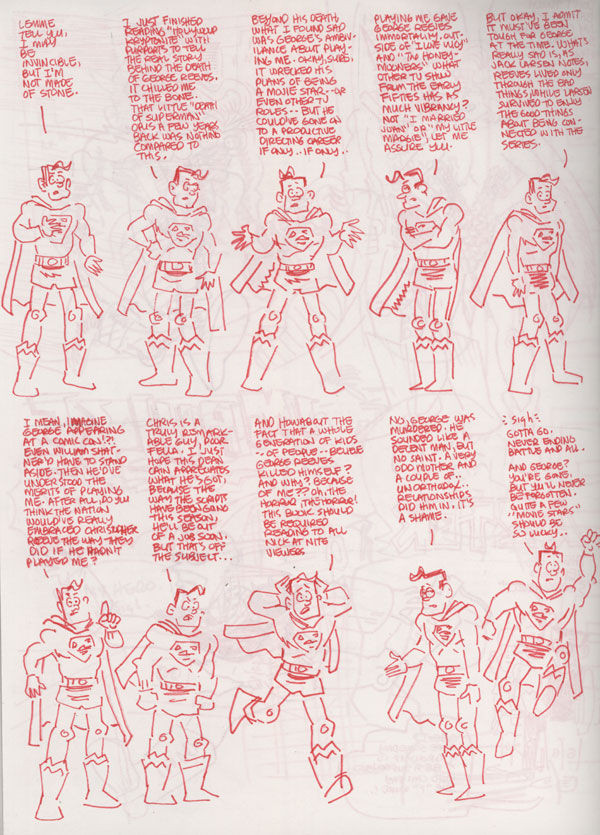 LEMME
TELL YUI,
I MAY
BE
INVINCIBLE,
BUT I'M
NOT MADE
OF STONE.
I JUST FINISHED
READING "HOLLYWOOD
KRYPTONITE" WITH
PURPORTS TO TELL
THE REAL STORY
BEHIND THE DEATH
OF GEORGE REEVES.
IT CHILLED ME
TO THE BONE.
THAT LITTLE "DEATH
OF SUPERMAN"
OPUS A FEW YEARS
BACK WAS NOTHING
COMPARED TO
THIS.
BEYOND HIS DEATH
WHAT I FOUND SAD
WAS GEORGE'S AMBIV-
ILANCE ABOUT PLAY-
ING ME. OKAY, SURE,
IT WRECKED HIS
PLANS OF BEING
A MOVIE STAR--OR
EVEN OTHER TV
ROLES-- BUT HE
COULD'VE GONE ON
TO A PRODUCTIVE
DIRECTING CAREER
IF ONLY.. IF ONLY..
PLAYING ME GAVE
GEORGE REEVES
IMMORTALITY. OUT-
SIDE OF "I LOVE LUCY"
AND "THE HONEY-
MOONERS" WHAT
OTHER TV SHOW
FROM THE EARLY
FIFTIES HAS AS
MUCH VIBRANCY?
NOT "I MARRIED
JOAN" OR "MY LITTLE
MARGIE", LET ME
ASSURE YUI.
BUT OKAY, I ADMIT.
IT MUST'VE BEEN
TOUGH FOR GEORGE
AT THE TIME. WHAT'S
REALLY SAD IS, AS
JACK LARSEN NOTES,
REEVES LIVED ONLY
THROUGH THE BAD
THINGS WHILE LARSEN
SURVIVED TO ENJOY
THE GOOD THINGS
ABOUT BEING CON-
NECTED WITH THE
SERIES.
I MEAN, IMAGINE
GEORGE APPEARING
AT A COMIC CON!?!
EVEN WILLIAM SHAT-
NER'D HAVE TO STAND
ASIDE. THEN HE'D'VE
UNDERSTOOD THE
MERITS OF PLAYING
ME. AFTER ALL, DO YUI
THINK THE NATION
WOULD'VE REALLY
EMBRACED CHRISTOPHER
REEVE THE WAY THEY
DID IF HE HADN'T
PLAYED ME?
CHRIS IS A
TRULY REMARK-
ABLE GUY, POOR
FELLA. I JUST
HOPE THIS DEAN
CAIN APPRECIATES
WHAT HE'S GOT,
BECAUSE THE
WAY THE SCRIPTS
HAVE BEEN GOING
THIS SEASON,
HE'LL BE OUT
OF A JOB SOON.
BUT THAT'S OFF
THE SUBJECT...
AND HOWABOUT THE
FACT THAT A WHOLE
GENERATION OF KIDS
-- OF PEOPLE -- BELIEVE
GEORGE REEVES
KILLED HIMSELF?
AND WHY? BECAUSE
OF ME?? OH, THE
HORROR, THE HORROR!
THIS BOOK SHOULD
BE REQUIRED
READING TO ALL
NICK AT NITE
VIEWERS
NO, GEORGE WAS
MURDERED. HE
SOUNDED LIKE A
DECENT MAN, BUT
NO SAINT. A VERY
ODD MOTHER AND
A COUPLE OF..
UNORTHODOX..
RELATIONSHIPS
DID HIM IN. IT'S
A SHAME.
SIGH
GOTTA GO.
NEVER ENDING
BATTLE AND ALL.
AND GEORGE?
YOU'RE GONE,
BUT YUI'LL NEVER
BE FORGOTTEN.
QUITE A FEW
"MOVIE STARS"
SHOULD BE
SO LUCKY..